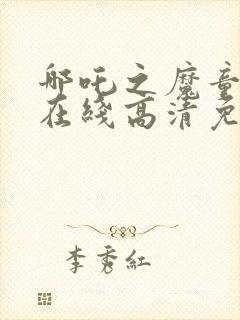 哪吒之魔童
在线高清免
李秀红